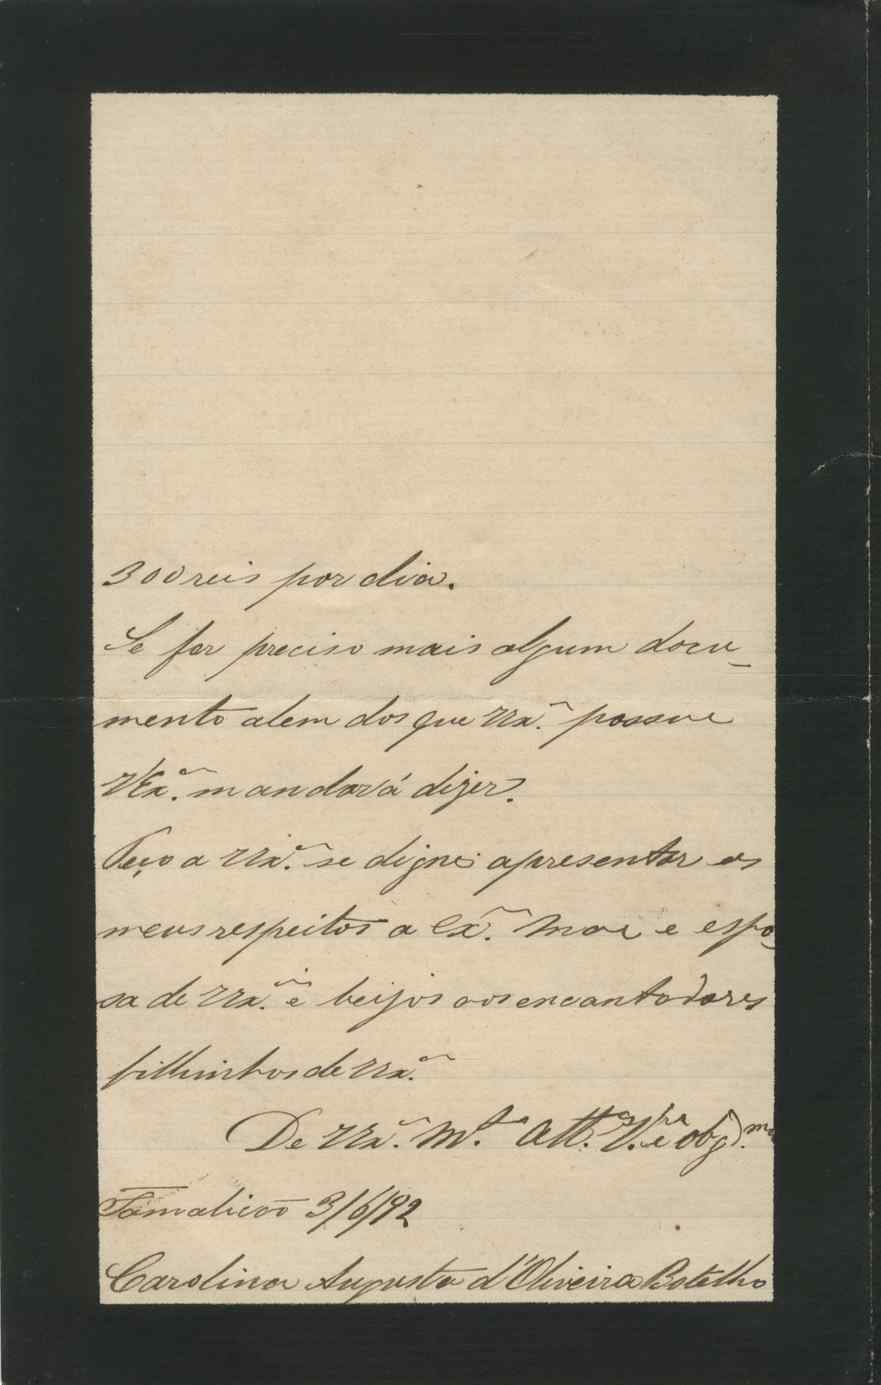 300 reis por dia.
Se for preciso mais algum docu-
mento alem dos que VEx.ª possue
VEx.ª mandará dizer.
Peço a VEx.ª se digne apresentar os
meus respeitos a Ex.ª Mãe e espo-
sa de VEx.ª e beijos aos encantadores
filhinhos de VEx.ª
De VEx.ª M.to Att.ª V.ra e obgd.ma
Famalicão 3/6/92
Carolina Augusta d'Oliveira Botelho